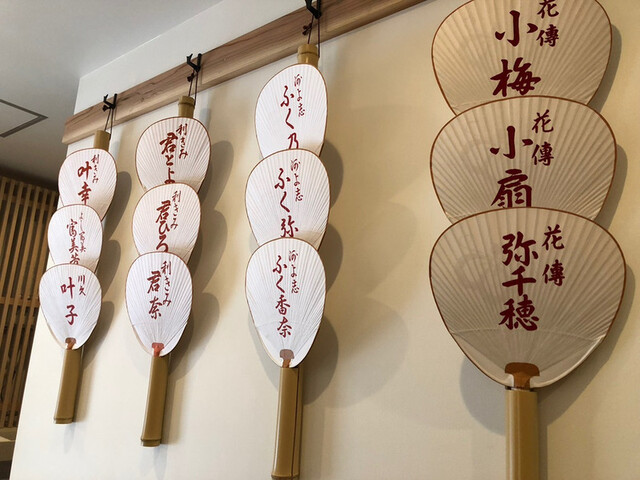 利きみ
叶幸
川久
叶子
利きみ
君とよ
利きみ
君ひろ
利きみ
君奈
河よ志
ふく乃
河よ志
ふく弥
河よ志
ふく香奈
花傳
小梅
花傳
小扇
花傳
弥千穂